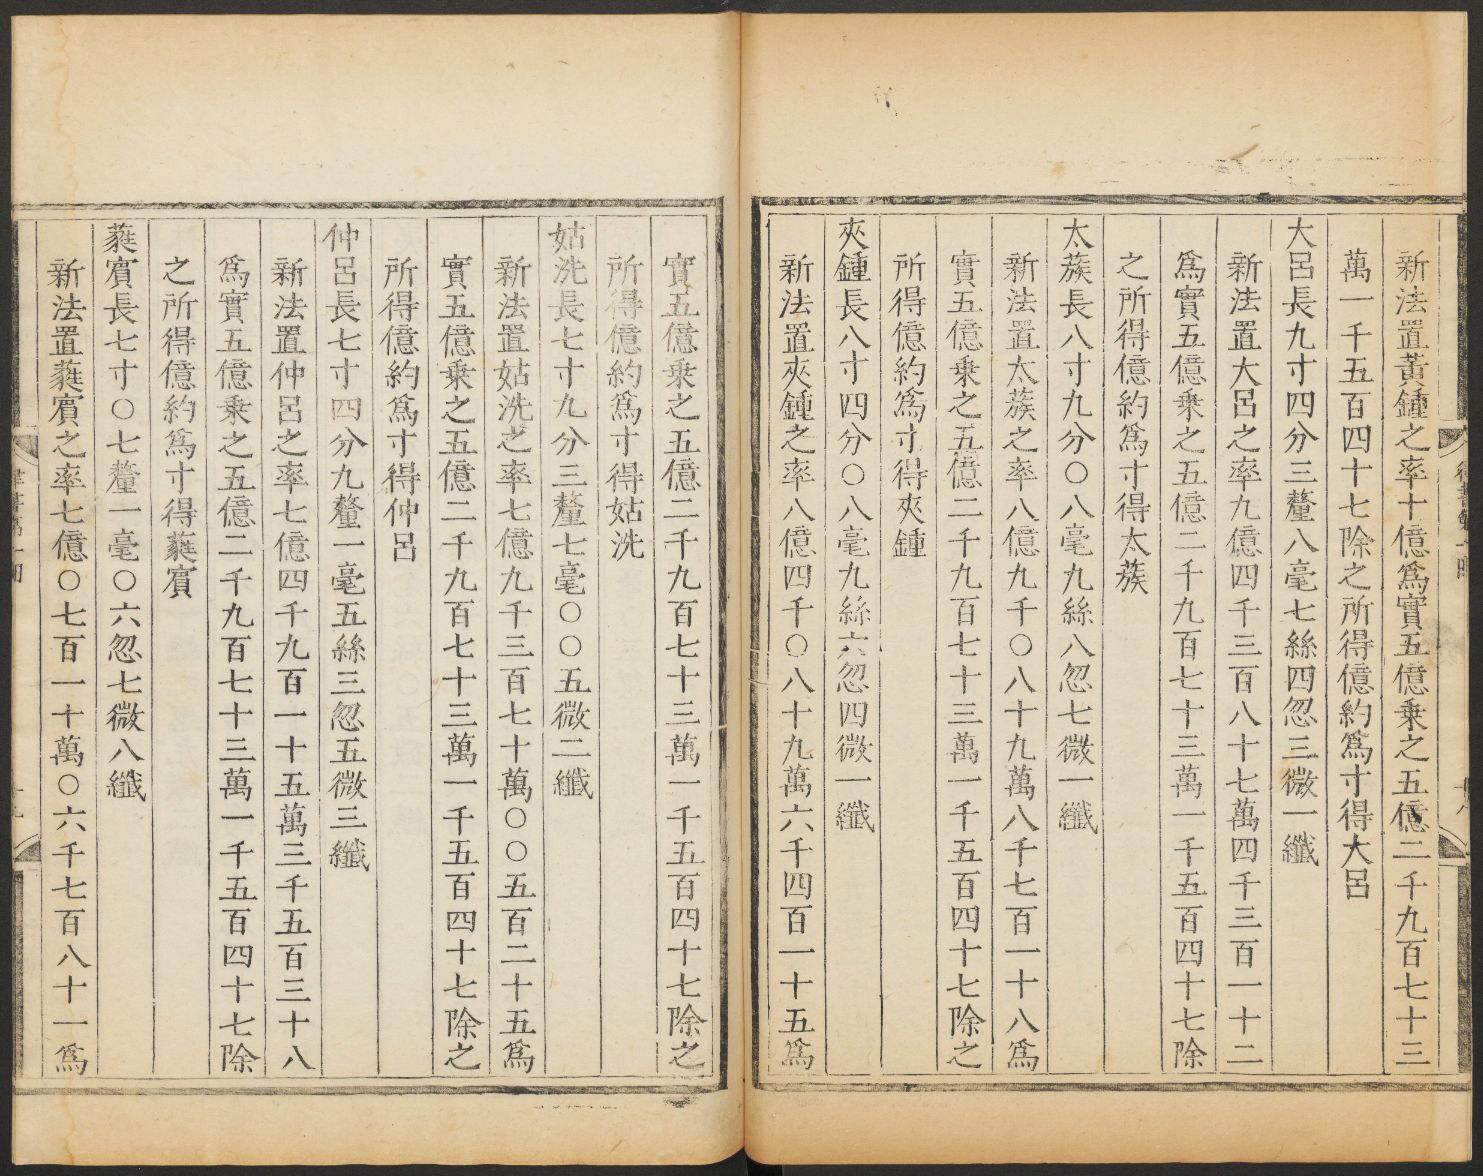 新法置黃鍾之率十億爲實五億乗之五億二千九百七十三
萬一千五百四十七除之所得億約爲寸得大呂
大呂長九寸四分三釐八毫七絲四忽三微一纖
新法置大呂之率九億四千三百八十七萬四千三百一十二
爲實五億乗之五億二千九百七十三萬一千五百四十七除
之所得億約爲寸得太蔟
太蔟長八寸九分〇八毫九絲八忽七微一纖
新法置太蔟之率八億九千〇八十九萬八千七百一十八爲
實五億乗之五億二千九百七十三萬一千五百四十七除之
所得億約爲寸得夾鍾
夾鍾長八寸四分〇八毫九絲六忽四微一纖
新法置夾鍾之率八億四千〇八十九萬六千四百一十五爲
實五億乗之五億二千九百七十三萬一千五百四十七除之
所得億約爲寸得姑洗
姑洗長七寸九分三釐七毫〇〇五微二纖
新法置姑洗之率七億九千三百七十萬〇〇五百二十五爲
實五億乗之五億二千九百七十三萬一千五百四十七除之
所得億約爲寸得仲呂
仲呂長七寸四分九釐一毫五絲三忽五微三纖
新法置仲呂之率七億四千九百一十五萬三千五百三十八
爲實五億乗之五億二千九百七十三萬一千五百四十七除
之所得億約爲寸得蕤賔
蕤賔長七寸〇七釐一毫〇六忽七微八纖
新法置蕤賔之率七億〇七百一十萬〇六千七百八十一爲